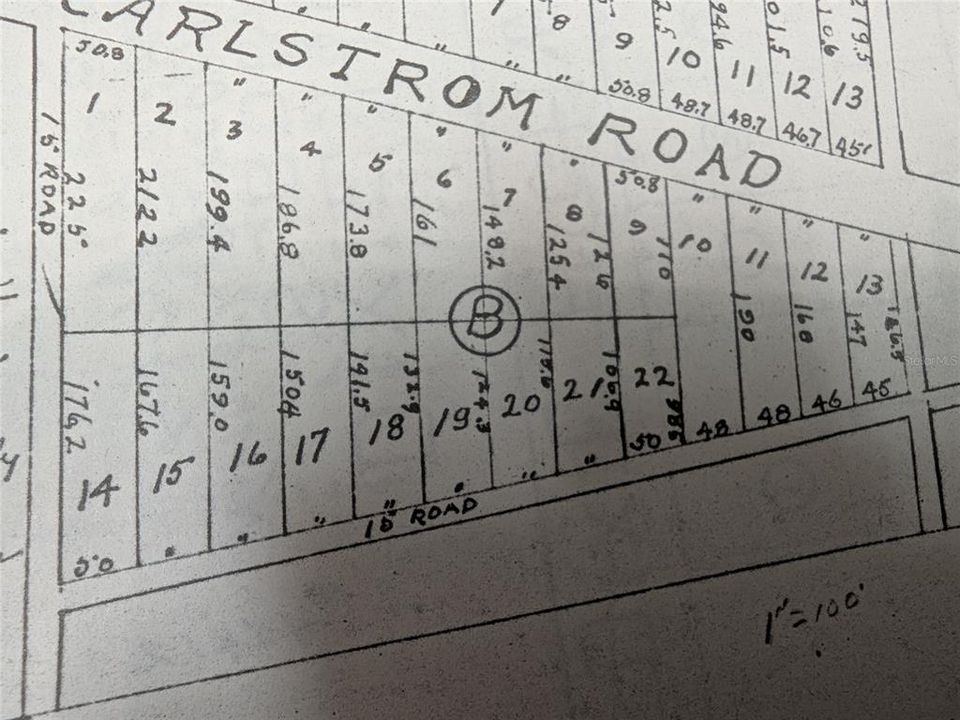 CARLSTROM ROAD
7
5.8
9
50.8
2.5
10
48.7
94.6
11
48.7
01.5
12
46.7
10.6
13
45'
219.5
15' ROAD
50.8
1
225°
2
212.2
"
3
199.4
"
4
186.8
"
5
173.8
"
6
161
"
7
148.2
"
8
125.4
126
50.8
9
110
"
10
"
11
190
"
12
168
"
13
147
B
176.2
14
50
167.6
15
"
159.0
16
"
150.4
17
"
141.5
18
"
132.9
19
"
124.3
20
"
115.6
21
"
106.9
22
50
98.5
48
48
46
45
15' ROAD
1"=100'
Stellar MLS